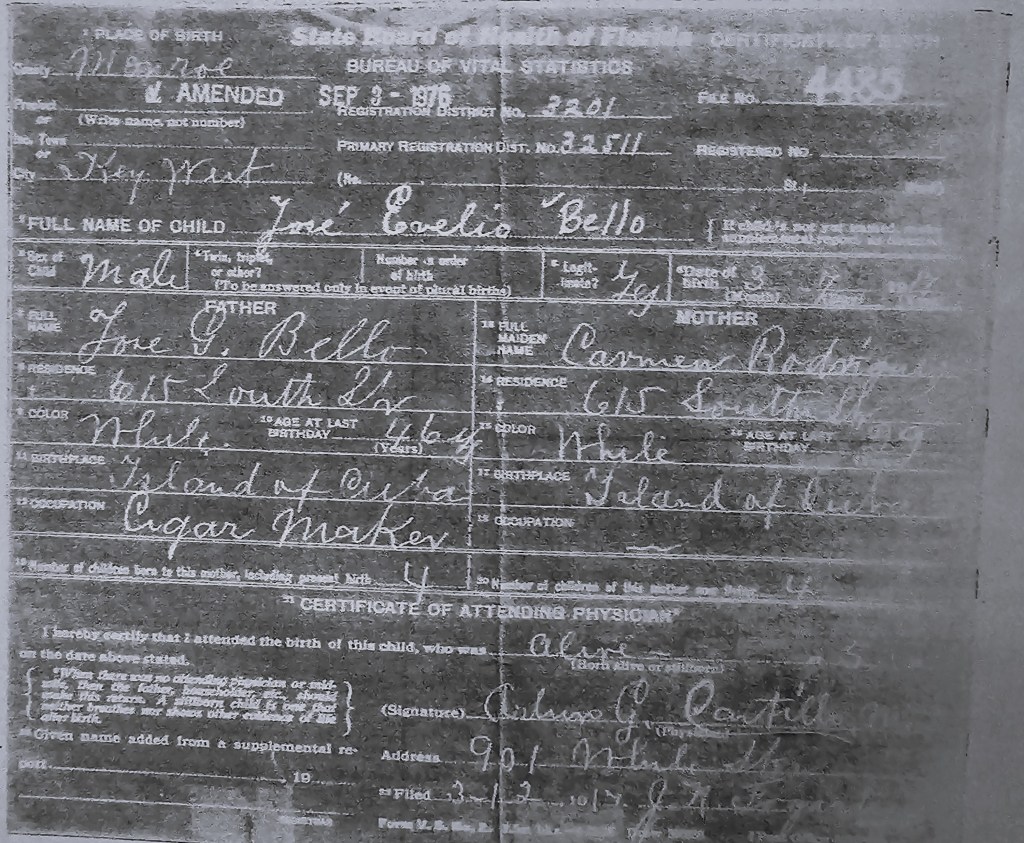 1 PLACE OF BIRTH
State Board of Health of Florida CERTIFICATE OF BIRTH
County Monroe
BUREAU OF VITAL STATISTICS
AMENDED SEP 3 - 1976
FILE No. 4485
REGISTRATION DISTRICT No. 3201
Precinct
or
(Write name, not number)
Inc. Town
or
PRIMARY REGISTRATION DIST. No. 32511
REGISTERED NO.
City Key West
(No. St.;
FULL NAME OF CHILD José Evelio Bello
If child is not yet named make
Sex of Child Male
Twin, triplet, or other?
Number in order of birth
(To be answered only in event of plural births)
Legitimate? Yes
Date of birth 3
(Month)
FATHER
MOTHER
FULL NAME Jose G. Bello
FULL MAIDEN NAME Carmen Rodriguez
RESIDENCE 615 South St
RESIDENCE 615 South St
COLOR White
10 AGE AT LAST BIRTHDAY 46
(Years)
COLOR White
AGE AT LAST BIRTHDAY
11 BIRTHPLACE Island of Cuba
17 BIRTHPLACE Island of Cuba
OCCUPATION Cigar Maker
18 OCCUPATION —
19 Number of children born to this mother, including present birth 4
20 Number of children of this mother now living 4
21 CERTIFICATE OF ATTENDING PHYSICIAN*
I hereby certify that I attended the birth of this child, who was alive
(Born alive or stillborn)
on the date above stated.
*When there was no attending physician or midwife, then the father, householder, etc., should
make this return. A stillborn child is one that
neither breathes nor shows other evidence of life
after birth.
(Signature) G.
(Physician)
Given name added from a supplemental re-
port 19
Address 901 White St
Filed 3-12 1917